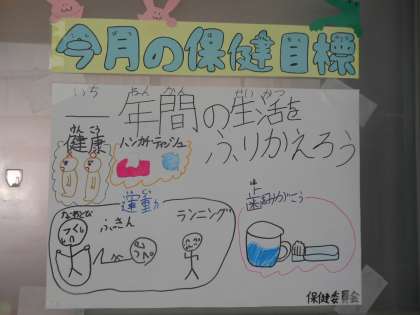 今月の保健目標
いち ねん かん せい かつ
一年間の生活を
ふりかえろう
けん こう
健康
ハンカチ・ティッシュ
うん どう
運動
なわとび
ふっきん
ランニング
は
歯みがこう
保健委員会